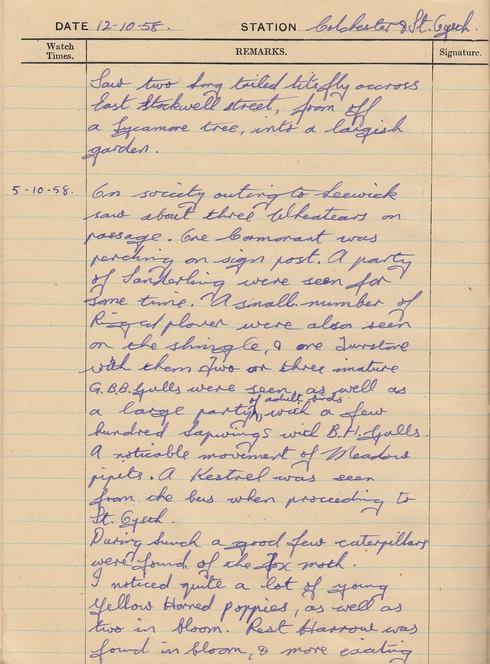 DATE 12-10-58. STATION Colchester & St. Oysth.
Watch Times. REMARKS. Signature.
Saw two long tailed tits fly accross
East Stockwell street, from off
a Sycamore tree, into a largish
garden.
5-10-58. On society outing to Leewick
saw about three Wheatears on
passage. One Cormorant was
perching on sign post. A party
of Sanderling were seen for
some time. A small number of
Ringed plover were also seen
on the shingle, & one Turnstone
with them two or three imature
G.B.B. Gulls were seen, as well as
of adult birds
a large party, with a few
hundred Lapwings with B.H. Gulls.
A noticable movement of Meadow
pipits. A Kestrel was seen
from the bus when proceeding to
St. Oysth.
During lunch a good few caterpillars
were found of the fox moth.
I noticed quite a lot of young
Yellow Horned poppies, as well as
two in bloom. Rest Harrow was
found in bloom, & more exciting